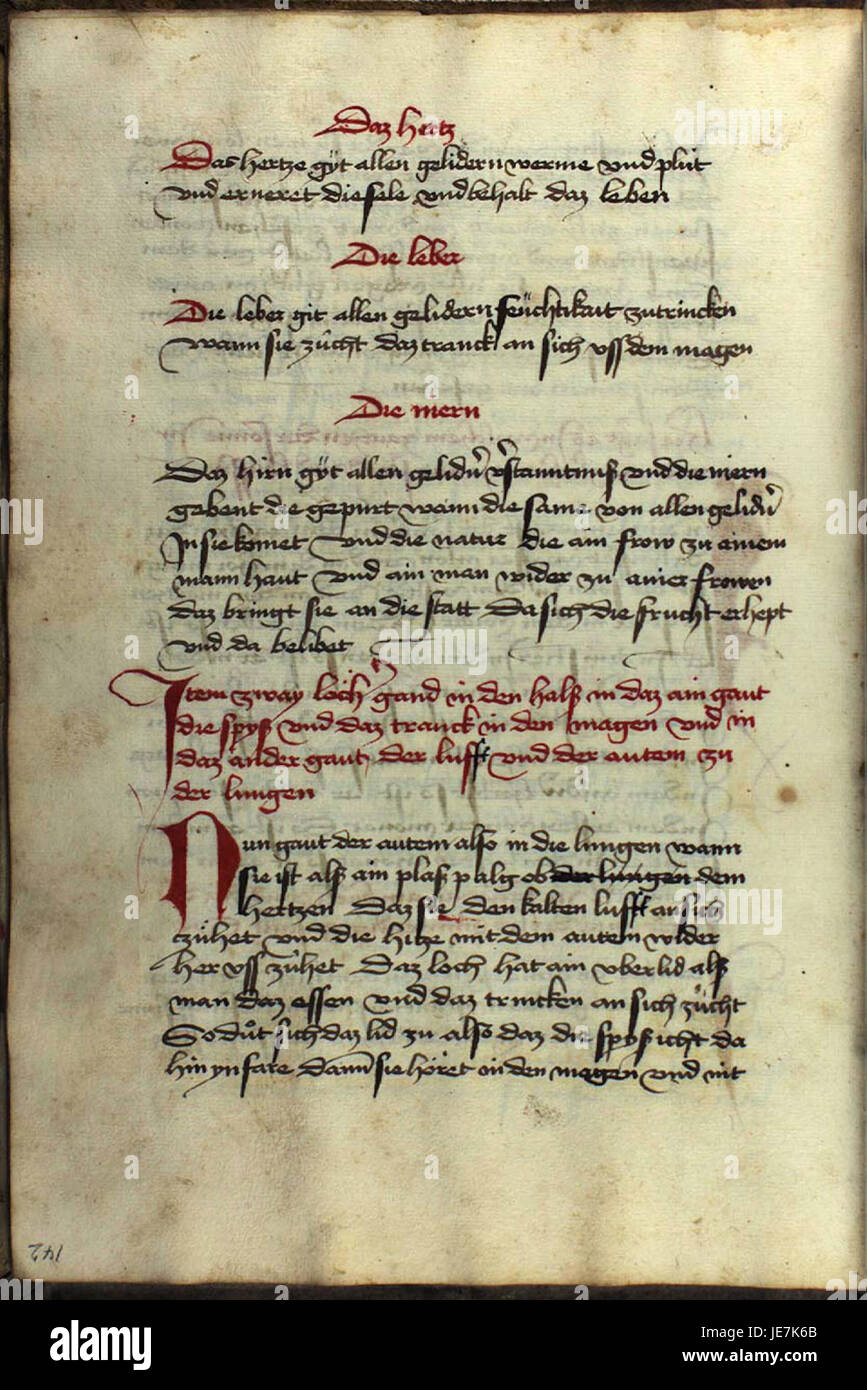 Daz hertz
Das hertze gÿt allen gelidern werme vnd plůt
vnd erneret die sele vnd behalt daz leben
Die leber
Die leber git allen gelidern feüchtikait zutrincken
wann sie zücht daz tranck an sich vss dem magen
Die niern
Daz hirn gÿt allen gelidn̄ v̄stanntniß vnd die niern
gebent die gepurt wann die same von allen gelidn̄
In sie komet vnd die natur die ain frow zu einem
mann haut vnd ain man wider zu ainer frowen
daz bringt sie an die statt da sich die frucht erhept
vnd da belibet
Item zway loch gand in den halß in daz ain gaut
die spyß vnd daz tranck in den magen vnd in
daz ander gaut der lufft vnd der autem zu
der lungen
Nun gaut der autem also in die lungen wann
sie ist alß ain plaß palg ob der lungen dem
hertzen Daz sie den kalten lufft an sich
zühet vnd die hitze mit dem autem wider
her vss zühet Daz loch hat ain vberlid alß
man daz essen vnd daz trincken an sich zücht
So důt sich daz lid zu also daz die spyß icht da
hin yn fare dann sie höret in den magen vnd nit
142
alamy
Image ID: JE7K6B
www.alamy.com